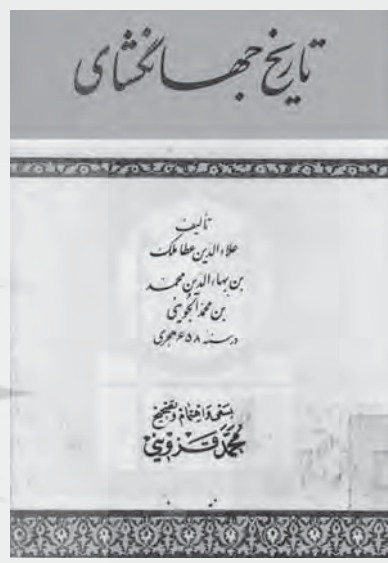 تاریخ جهانگشای
تألیف
علاءالدین عطا ملک
بن بهاءالدین محمد
بن محمد الجوینی
در سنه ۶۵۸ هجری
بسعی و اهتمام و تصحیح
محمد قزوینی